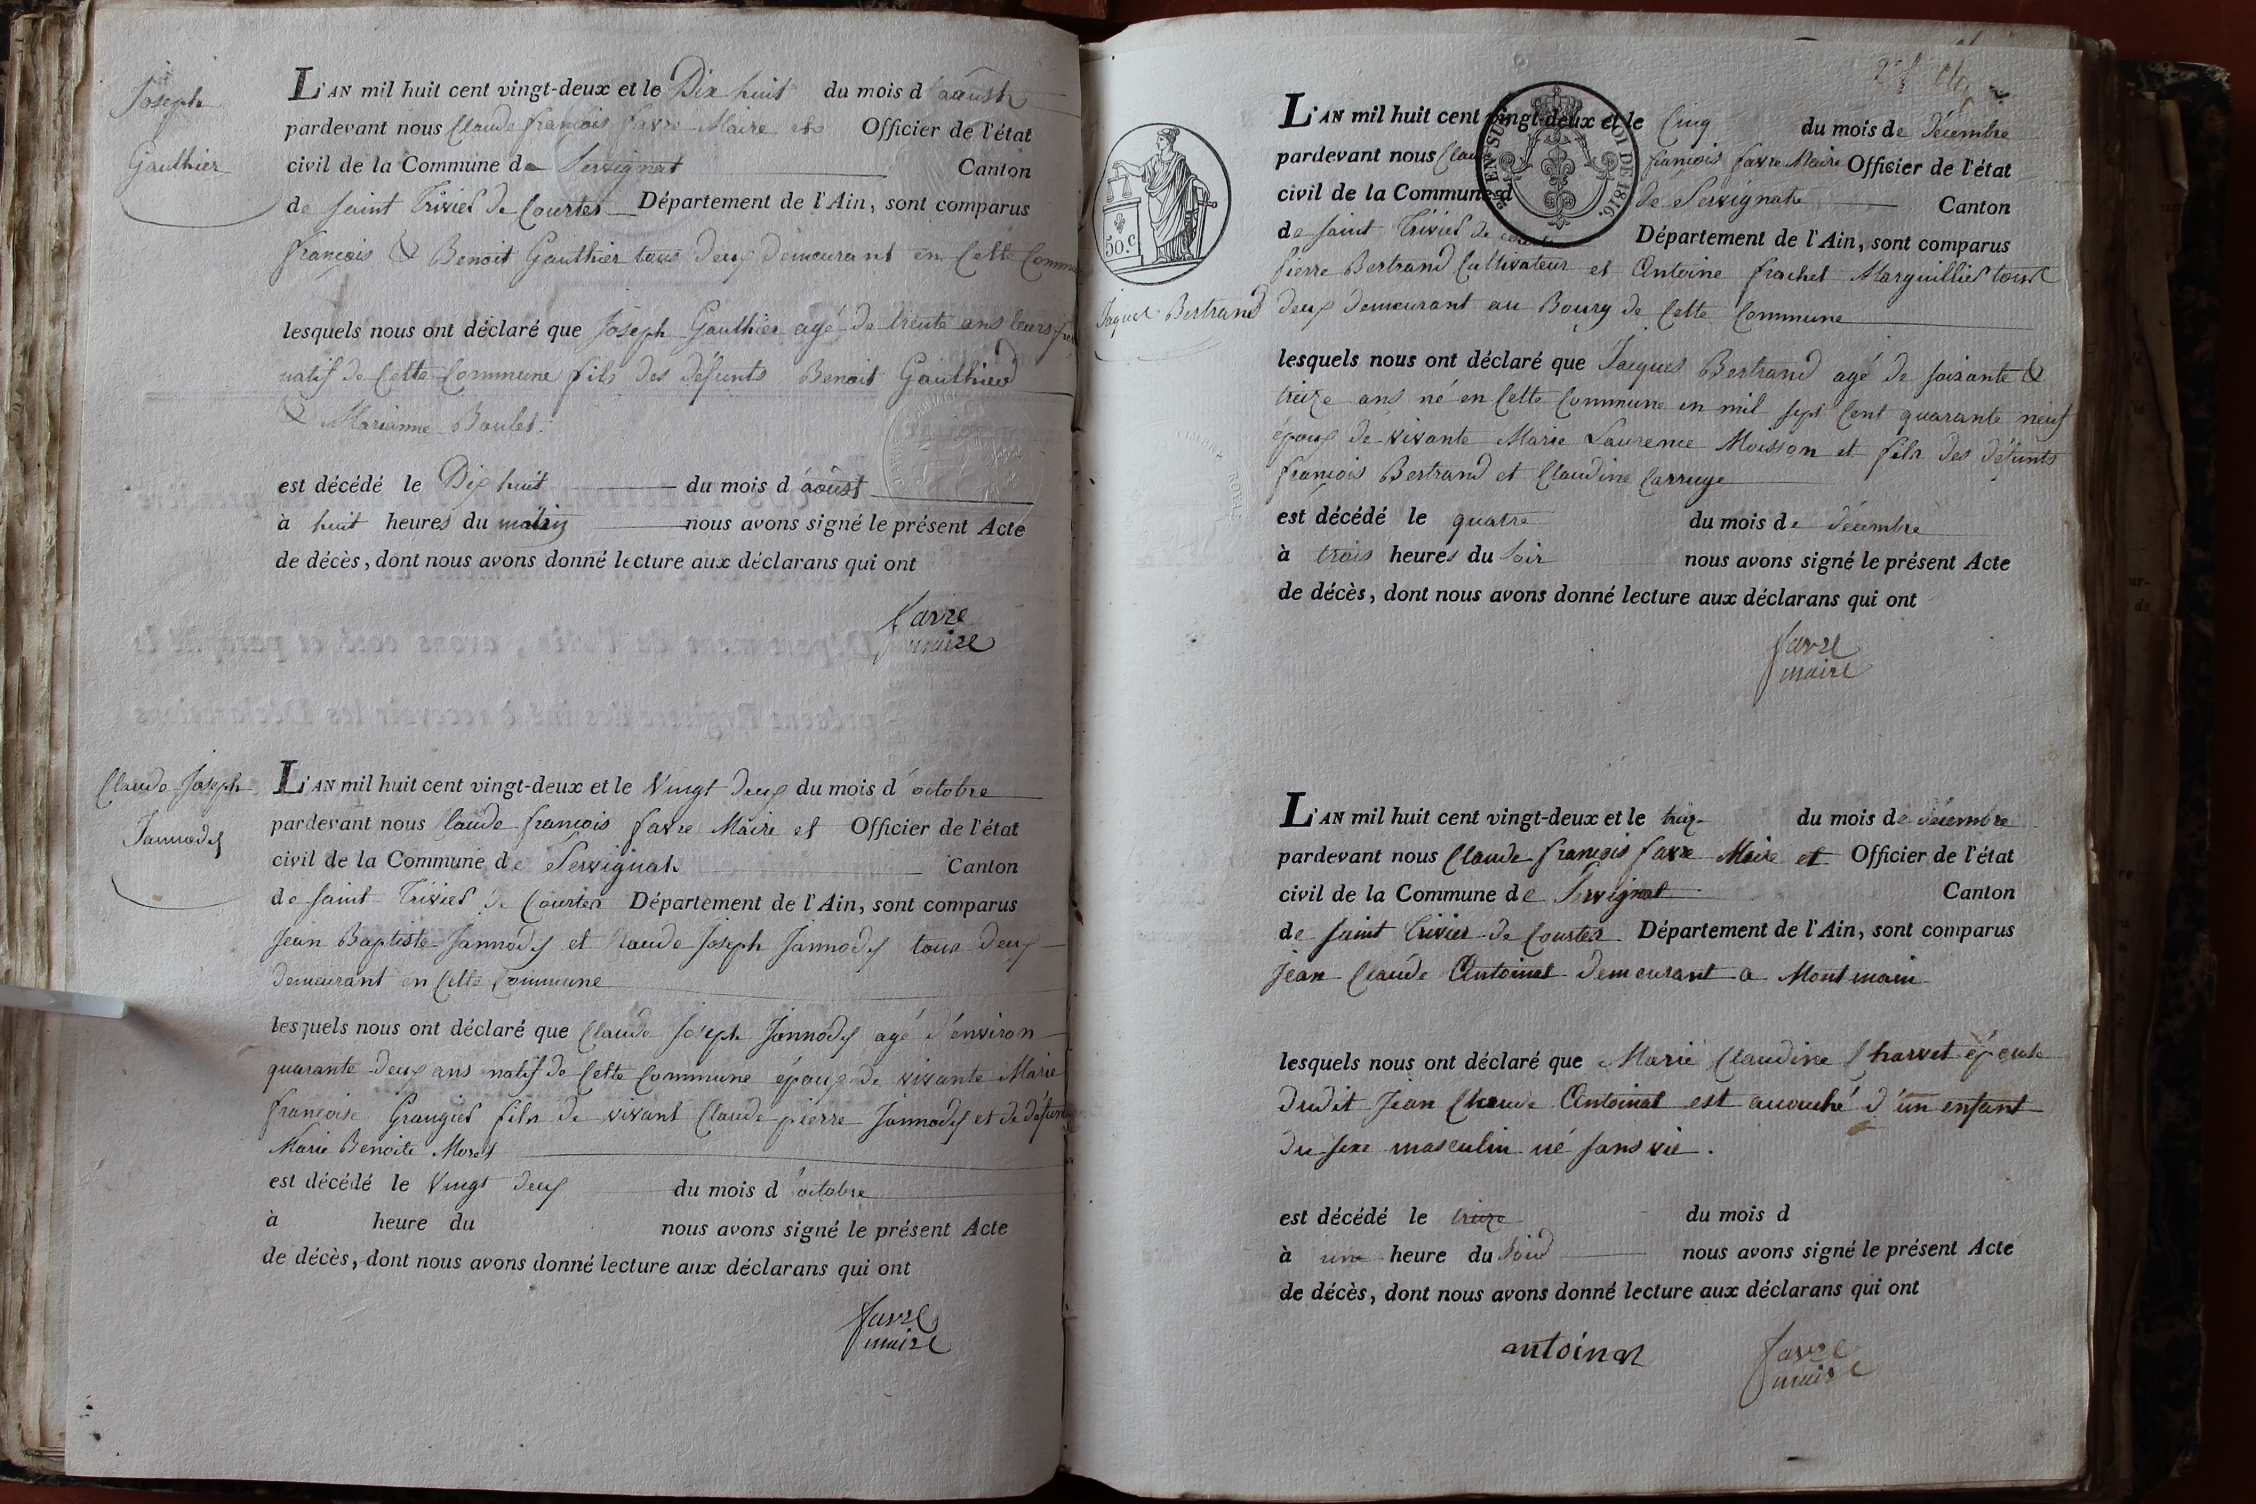 Joseph
Gauthier
L'AN mil huit cent vingt-deux et le Dix huit du mois d'aoust
pardevant nous Claude françois favre Maire et Officier de l'état
civil de la Commune de Servignat Canton
de saint Trivier de Courtes Département de l'Ain, sont comparus
françois & Benoit Gauthier tous deux demeurant en Cette Commune
lesquels nous ont déclaré que Joseph Gauthier agé de trente ans leurs frere
natif de Cette Commune fils des défunts Benoit Gauthier
& Marianne Boulet
est décédé le Dix huit du mois d'aoust
à huit heures du matin nous avons signé le présent Acte
de décès, dont nous avons donné lecture aux déclarans qui ont
favre
maire
Claude Joseph
Jannody
L'AN mil huit cent vingt-deux et le Vingt deux du mois d'octobre
pardevant nous Claude françois favre Maire et Officier de l'état
civil de la Commune de Servignat Canton
de saint Trivier de Courtes Département de l'Ain, sont comparus
Jean Baptiste Jannody et Claude Joseph Jannody tous deux
demeurant en Cette Commune
lesquels nous ont déclaré que Claude Joseph Jannody agé d'environ
quarante deux ans natif de Cette Commune époux de vivante Marie
françoise Grangier fils de vivant Claude pierre Jannody et de défunte
Marie Benoite Moret
est décédé le Vingt deux du mois d'octobre
à heure du nous avons signé le présent Acte
de décès, dont nous avons donné lecture aux déclarans qui ont
favre
maire
50.c
LOI DE 1816.
Jaques Bertrand
L'AN mil huit cent vingt-deux et le Cinq du mois de décembre
pardevant nous Claude françois favre Maire Officier de l'état
civil de la Commune d de Servignat Canton
de saint Trivier de Courtes Département de l'Ain, sont comparus
pierre Bertrand Cultivateur et Antoine frachet Marguillier tous
deux demeurant au Bourg de Cette Commune
lesquels nous ont déclaré que Jacques Bertrand agé de soixante &
treize ans né en Cette Commune en mil sept Cent quarante neuf
époux de vivante Marie Laurence Mousson et fils des défunts
françois Bertrand et Claudine Carruge
est décédé le quatre du mois de décembre
à trois heures du soir nous avons signé le présent Acte
de décès, dont nous avons donné lecture aux déclarans qui ont
favre
maire
L'AN mil huit cent vingt-deux et le treize du mois de décembre
pardevant nous Claude françois favre Maire et Officier de l'état
civil de la Commune de Servignat Canton
de saint Trivier de Courtes Département de l'Ain, sont comparus
jean Claude Antoinat demeurant a Montmain
lesquels nous ont déclaré que Marie Claudine Charvet épouse
dudit Jean Claude Antoinat est accouché d'un enfant
du sexe masculin né sans vie.
est décédé le treize du mois d
à une heure du soir nous avons signé le présent Acte
de décès, dont nous avons donné lecture aux déclarans qui ont
antoinat
favre
maire